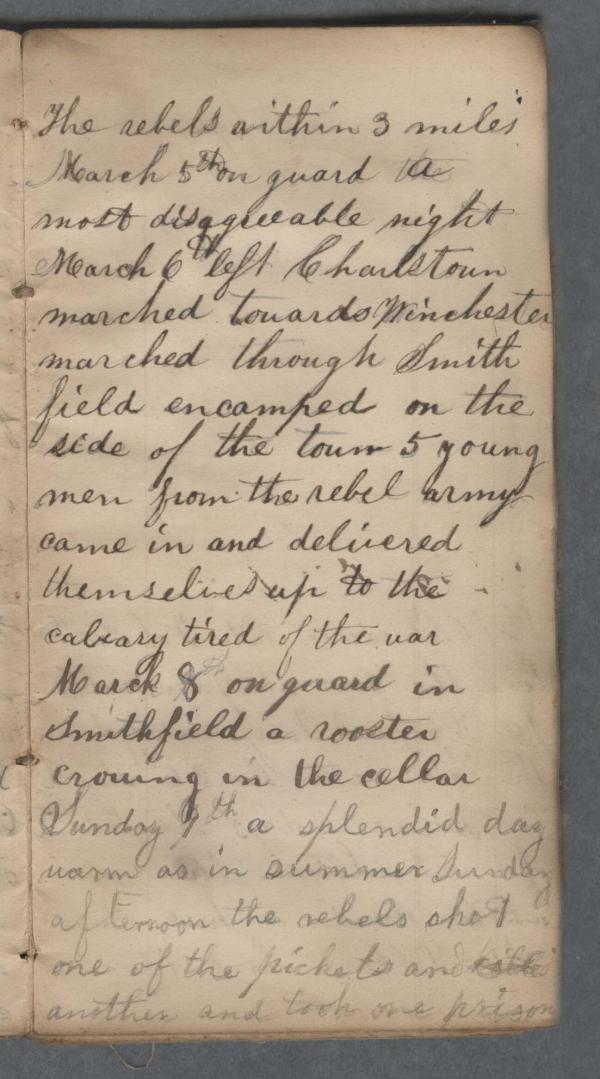 The rebels within 3 miles
March 5th on guard a
most disagreeable night
March 6th left Charlstoun
marched touards Winchester
marched through Smith
field encamped on the
side of the toun 5 young
men from the rebel army
came in and delivered
themselves up to the
calvary tired of the uar
March 8th on guard in
Smithfield a rooster
crouing in the cellar
Sunday 9th a splendid day
uarm as in summer Sunday
afternoon the rebels shot
one of the pickets and
another and took one prison